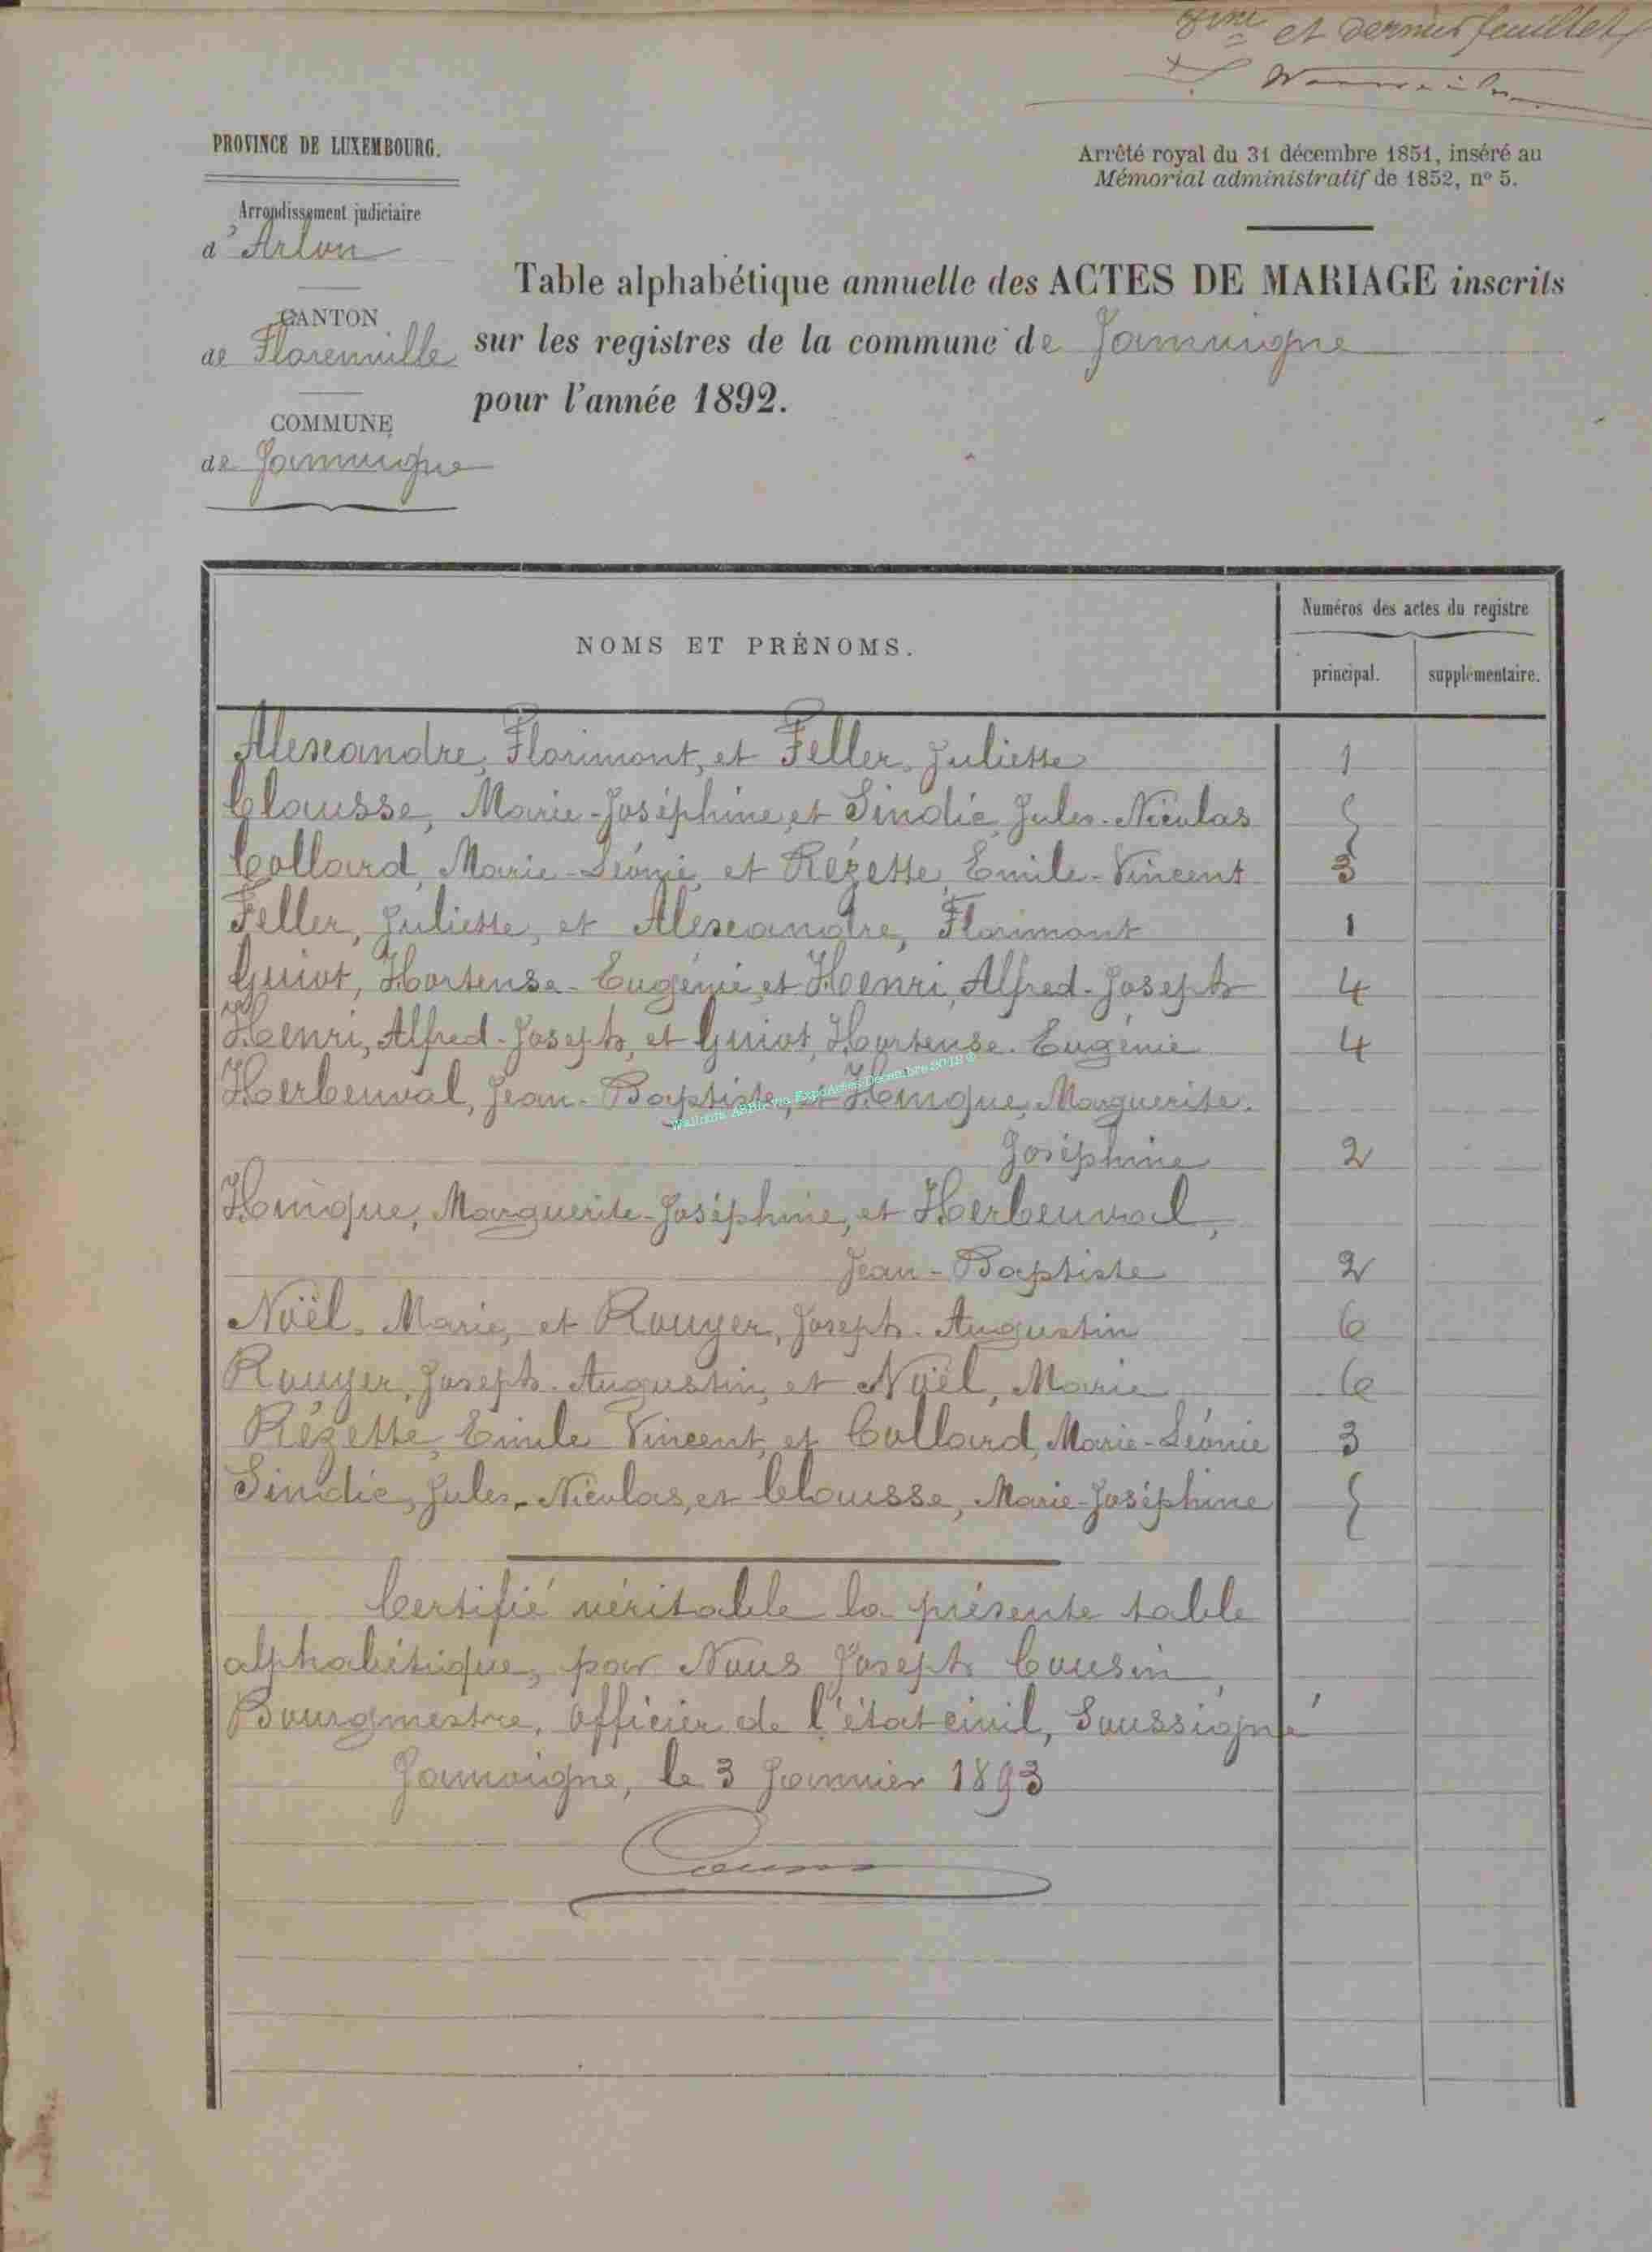 8eme et dernier feuillet
PROVINCE DE LUXEMBOURG.
Arrêté royal du 31 décembre 1851, inséré au
Mémorial administratif de 1852, nº 5.
Arrondissement judiciaire
d'Arlon
CANTON
de Florenville
COMMUNE
de Jamoigne
Table alphabétique annuelle des ACTES DE MARIAGE inscrits
sur les registres de la commune de Jamoigne
pour l'année 1892.
NOMS ET PRÉNOMS.
Numéros des actes du registre
principal. supplémentaire.
Alexandre, Florimont, et Feller, Juliette 1
Clousse, Marie-Joséphine, et Sindic, Jules-Nicolas 5
Collard, Marie-Léonie, et Rézette, Emile-Vincent 3
Feller, Juliette, et Alexandre, Florimont 1
Guiot, Hortense-Eugénie, et Henri, Alfred-Joseph 4
Henri, Alfred-Joseph, et Guiot, Hortense-Eugénie 4
Herbeuval, Jean-Baptiste, et Hinque, Marguerite-
Joséphine 2
Hinque, Marguerite-Joséphine, et Herbeuval,
Jean-Baptiste 2
Noël, Marie, et Rouyer, Joseph-Augustin 6
Rouyer, Joseph-Augustin, et Noël, Marie 6
Rézette, Emile Vincent, et Collard, Marie-Léonie 3
Sindic, Jules-Nicolas, et Clousse, Marie-Joséphine 5
Certifié véritable la présente table
alphabétique, par Nous Joseph Cousin,
Bourgmestre, officier de l'état civil, Soussigné
Jamoigne, le 3 Janvier 1893
Cousin